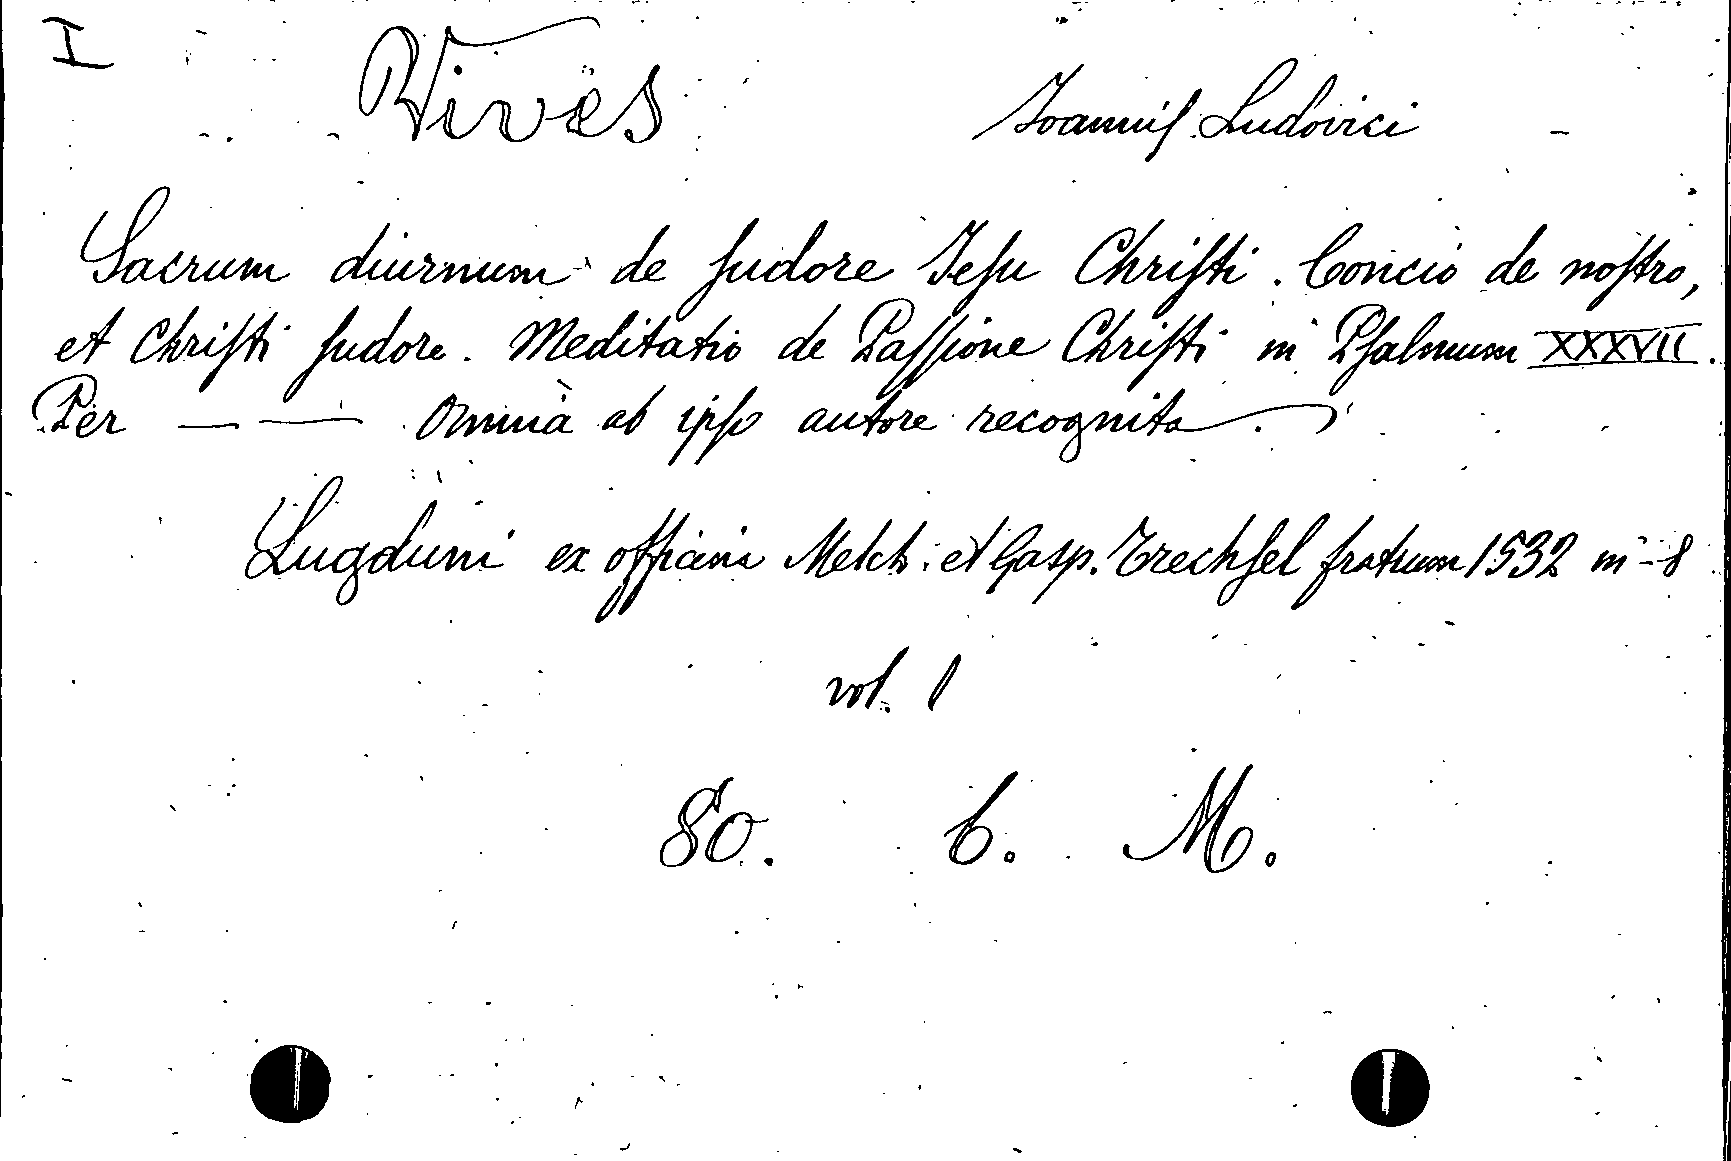 I
Vives Ioannis Ludovici
Sacrum diurnum de ſudore Ieſu Chriſti. Concio de noſtro,
et Chriſti ſudore. Meditatio de Paſſione Chriſti in Pſalmum XXXVII.
Per —— Omnia ab ipſo autore recognita.
Lugduni ex officina Melch. et Gasp. Trechſel fratrum 1532 in-8
vol. 1
80. 6. M.